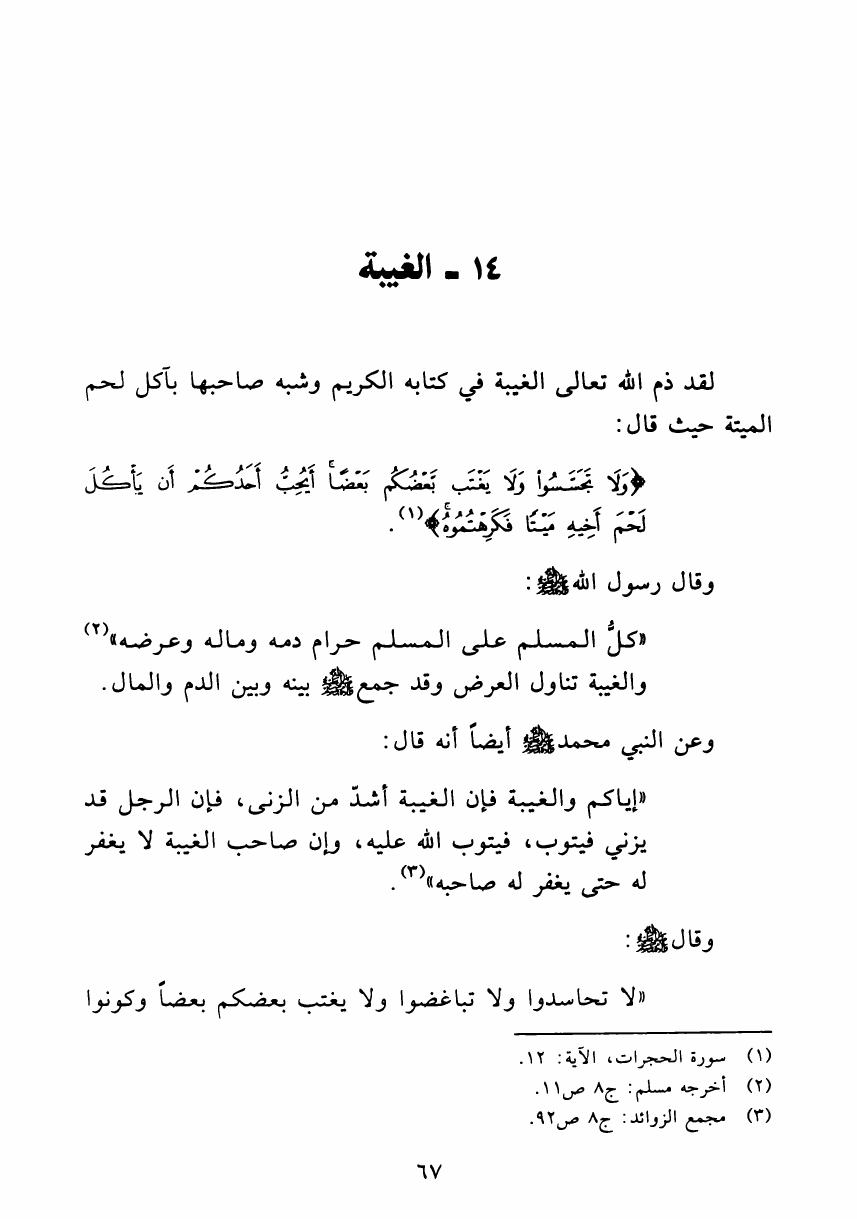 ١٤ - الغيبة
لقد ذم الله تعالى الغيبة في كتابه الكريم وشبه صاحبها بآكل لحم
الميتة حيث قال:
﴿وَلَا تَجَسَّسُوا۟ وَلَا يَغْتَب بَّعْضُكُم بَعْضًا ۚ أَيُحِبُّ أَحَدُكُمْ أَن يَأْكُلَ
لَحْمَ أَخِيهِ مَيْتًا فَكَرِهْتُمُوهُ ۚ﴾(١).
وقال رسول الله ﷺ:
«كلُّ المسلم على المسلم حرام دمه وماله وعرضه»(٢)
والغيبة تناول العرض وقد جمع ﷺ بينه وبين الدم والمال.
وعن النبي محمد ﷺ أيضاً أنه قال:
«إياكم والغيبة فإن الغيبة أشدّ من الزنى، فإن الرجل قد
يزني فيتوب، فيتوب الله عليه، وإن صاحب الغيبة لا يغفر
له حتى يغفر له صاحبه»(٣).
وقال ﷺ:
«لا تحاسدوا ولا تباغضوا ولا يغتب بعضكم بعضاً وكونوا
(١) سورة الحجرات، الآية: ١٢.
(٢) أخرجه مسلم: ج٨ ص١١.
(٣) مجمع الزوائد: ج٨ ص٩٢.
٦٧